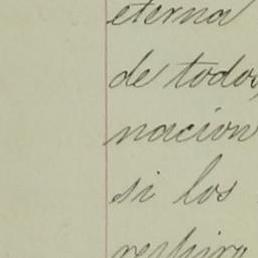 eterna
de todos
nacion
si los
respira